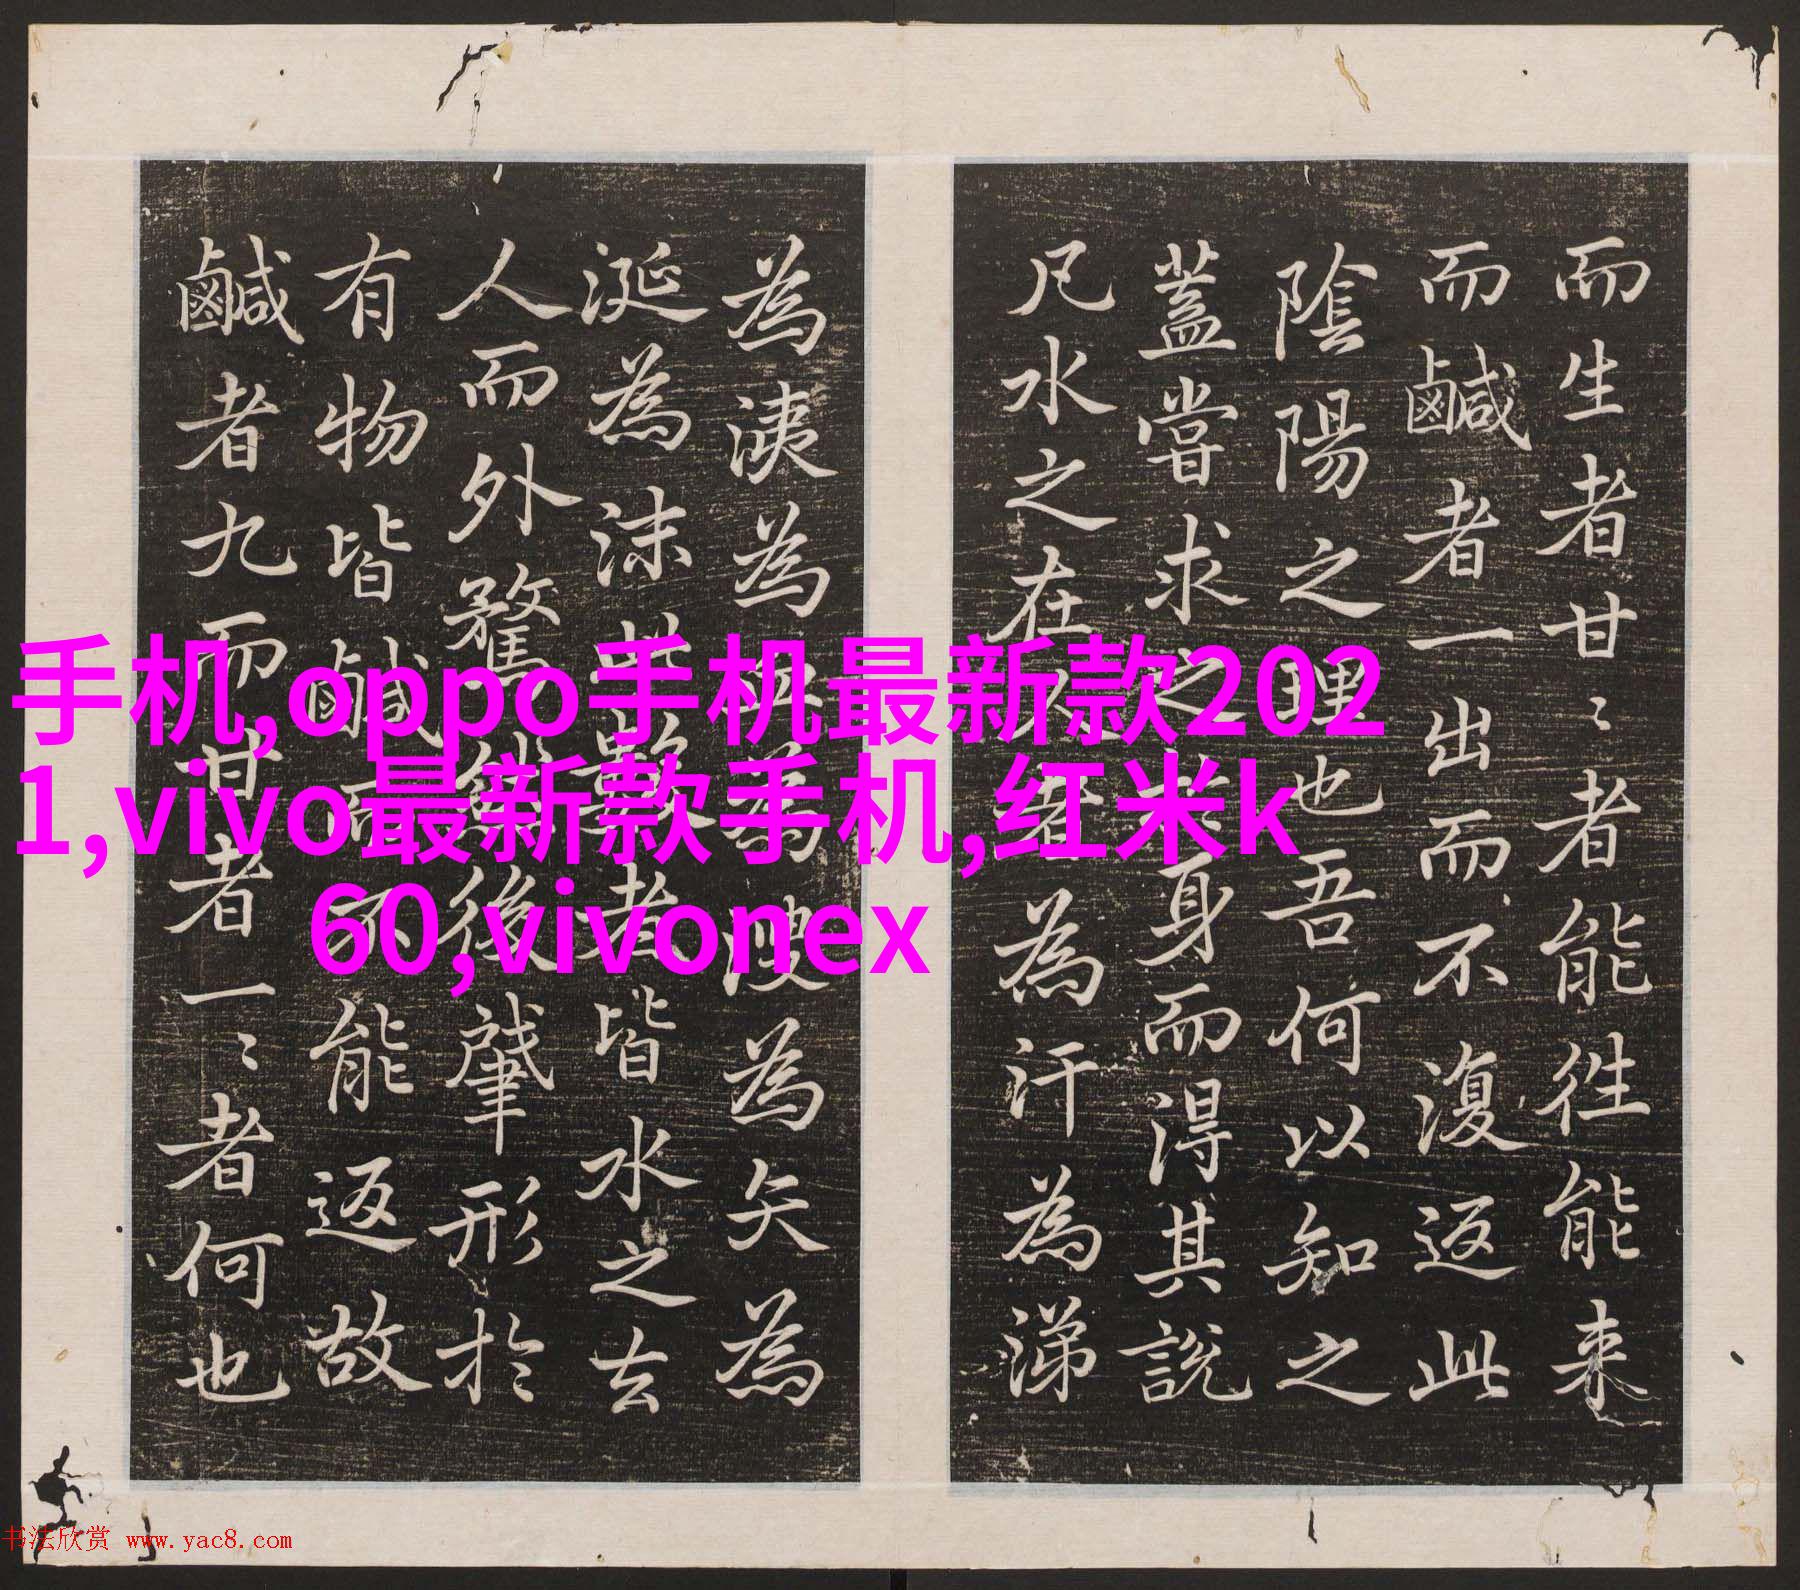 而生者甘〻者能往能来
而鹹者一出而不復返此
陰陽之理也吾何以知之
蓋嘗求之身而得其說
凡水之在者為汗為涕
為洟為為溲為矢為
涎為沫者皆水之去
人而外騖後肇形於
有物皆鹹而不能返故
鹹者九而甘者一〻者何也
手机,oppo手机最新款202
1,vivo最新款手机,红米k
60,vivonex
书法欣赏 www.yac8.com